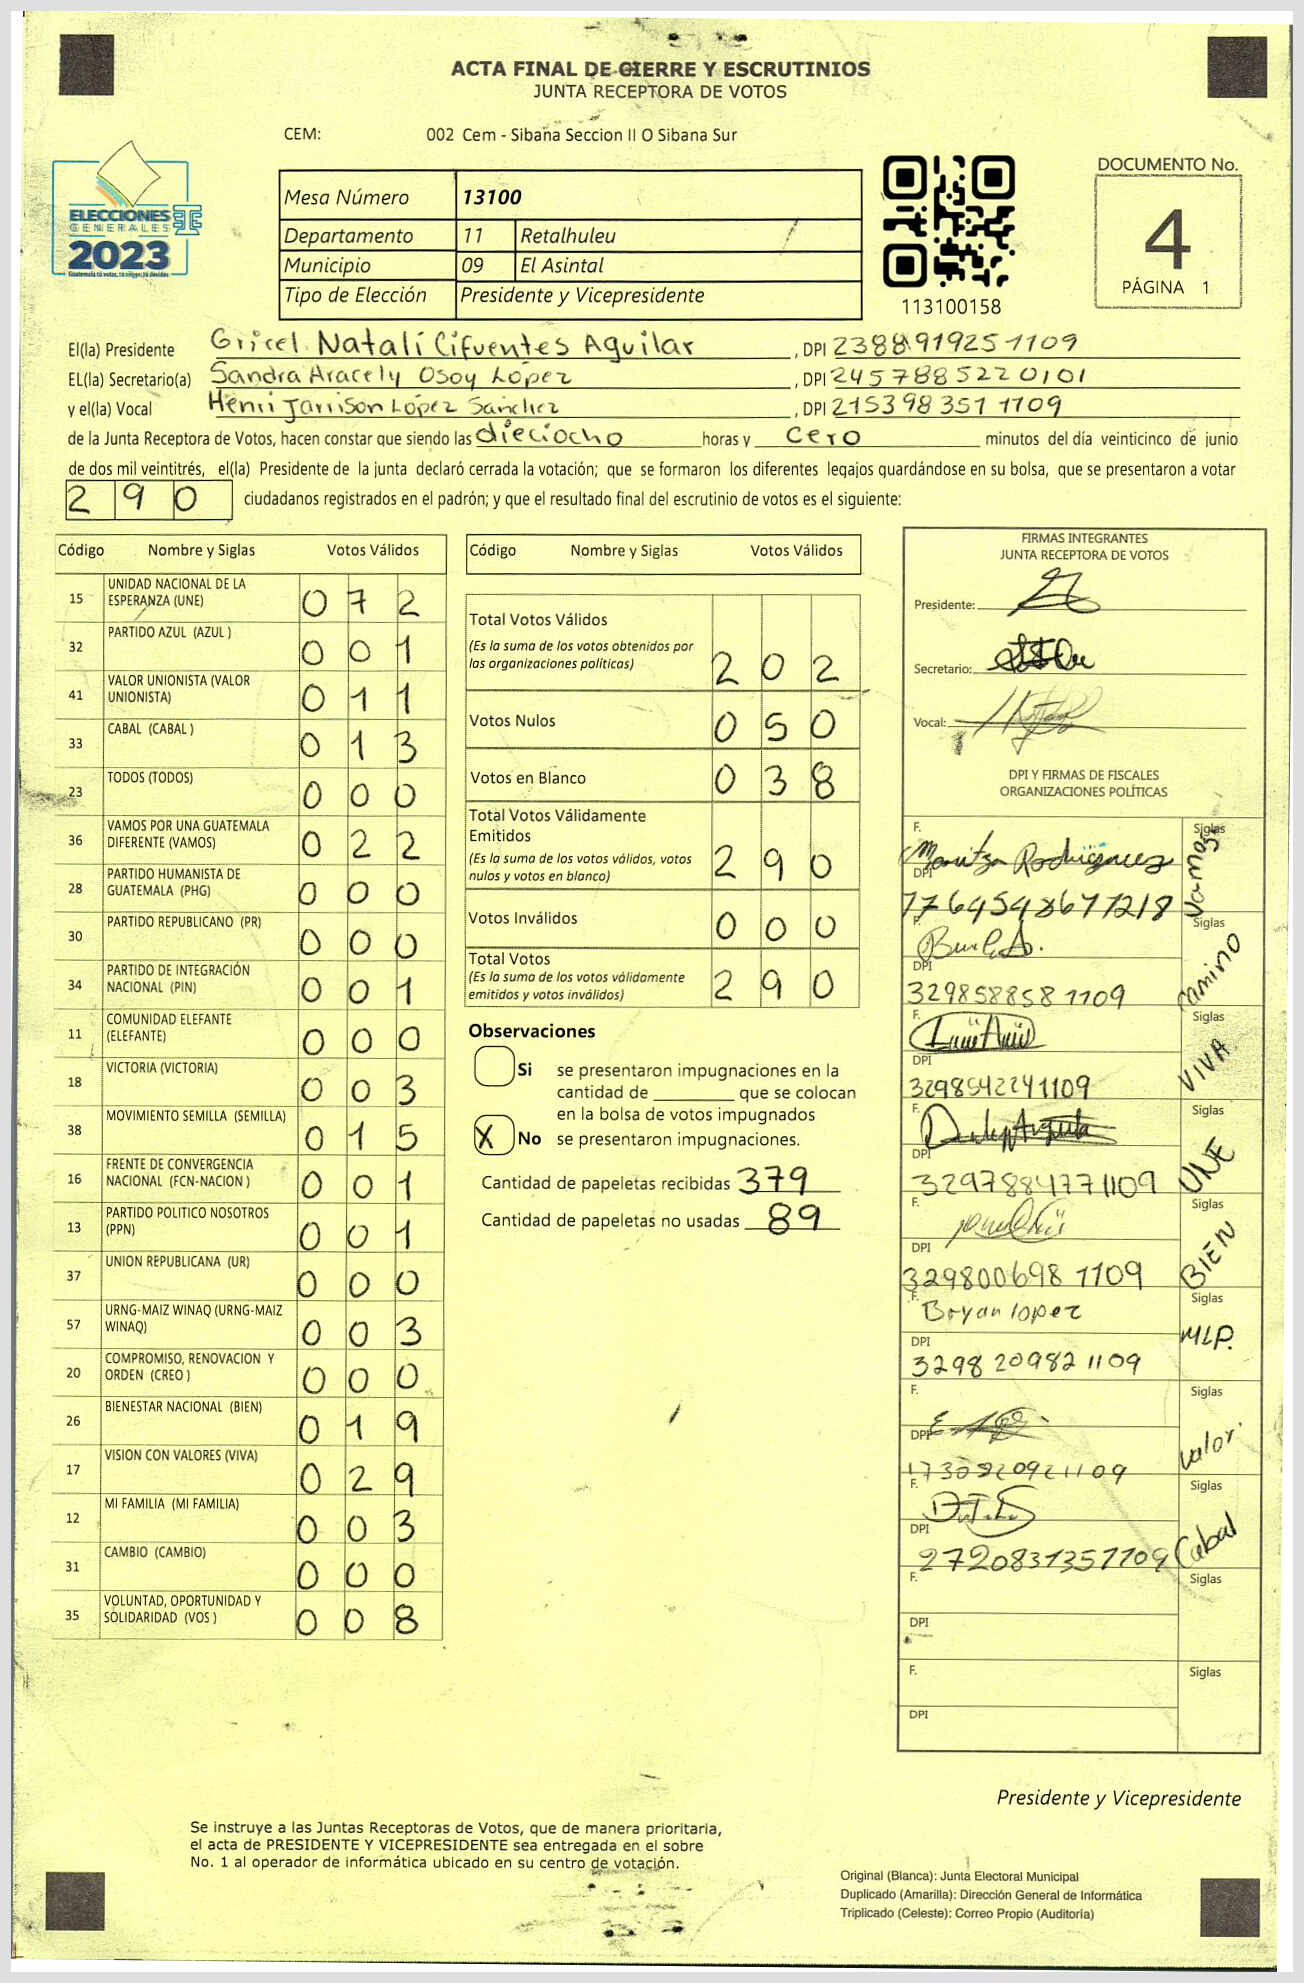 ACTA FINAL DE CIERRE Y ESCRUTINIOS
JUNTA RECEPTORA DE VOTOS
CEM: 002 Cem - Sibana Seccion II O Sibana Sur
ELECCIONES
GENERALES
2023
Mesa Número 13100
Departamento 11 Retalhuleu
Municipio 09 El Asintal
Tipo de Elección Presidente y Vicepresidente
113100158
DOCUMENTO No.
4
PÁGINA 1
El(la) Presidente Gricel Natalí Cifuentes Aguilar, DPI 2388919251109
EL(la) Secretario(a) Sandra Aracely Osoy López, DPI 2457885220101
y el(la) Vocal Henri Jarrison López Sánchez, DPI 2153983511109
de la Junta Receptora de Votos, hacen constar que siendo las dieciocho horas y cero minutos del día veinticinco de junio
de dos mil veintitrés, el(la) Presidente de la junta declaró cerrada la votación; que se formaron los diferentes legajos guardándose en su bolsa, que se presentaron a votar
290 ciudadanos registrados en el padrón; y que el resultado final del escrutinio de votos es el siguiente:
Código Nombre y Siglas Votos Válidos
15 UNIDAD NACIONAL DE LA ESPERANZA (UNE) 072
32 PARTIDO AZUL (AZUL ) 001
41 VALOR UNIONISTA (VALOR UNIONISTA) 011
33 CABAL (CABAL ) 013
23 TODOS (TODOS) 000
36 VAMOS POR UNA GUATEMALA DIFERENTE (VAMOS) 022
28 PARTIDO HUMANISTA DE GUATEMALA (PHG) 000
30 PARTIDO REPUBLICANO (PR) 000
34 PARTIDO DE INTEGRACIÓN NACIONAL (PIN) 001
11 COMUNIDAD ELEFANTE (ELEFANTE) 000
18 VICTORIA (VICTORIA) 003
38 MOVIMIENTO SEMILLA (SEMILLA) 015
16 FRENTE DE CONVERGENCIA NACIONAL (FCN-NACION ) 001
13 PARTIDO POLITICO NOSOTROS (PPN) 001
37 UNION REPUBLICANA (UR) 000
57 URNG-MAIZ WINAQ (URNG-MAIZ WINAQ) 003
20 COMPROMISO, RENOVACION Y ORDEN (CREO ) 000
26 BIENESTAR NACIONAL (BIEN) 019
17 VISION CON VALORES (VIVA) 029
12 MI FAMILIA (MI FAMILIA) 003
31 CAMBIO (CAMBIO) 000
35 VOLUNTAD, OPORTUNIDAD Y SOLIDARIDAD (VOS ) 008
Código Nombre y Siglas Votos Válidos
Total Votos Válidos
(Es la suma de los votos obtenidos por
las organizaciones políticas) 202
Votos Nulos 050
Votos en Blanco 038
Total Votos Válidamente
Emitidos
(Es la suma de los votos válidos, votos
nulos y votos en blanco) 290
Votos Inválidos 000
Total Votos
(Es la suma de los votos válidamente
emitidos y votos inválidos) 290
Observaciones
Si se presentaron impugnaciones en la
cantidad de ________ que se colocan
en la bolsa de votos impugnados
X No se presentaron impugnaciones.
Cantidad de papeletas recibidas 379
Cantidad de papeletas no usadas 89
FIRMAS INTEGRANTES
JUNTA RECEPTORA DE VOTOS
Presidente:
Secretario:
Vocal:
DPI Y FIRMAS DE FISCALES
ORGANIZACIONES POLÍTICAS
F. Maritza Rodriguez Siglas Vamos
DPI
F. Siglas camino
DPI 3298588581109
F. Siglas VIVA
DPI 3298542241109
F. Siglas UNE
DPI 3297884771109
F. Siglas BIEN
DPI 3298006981109
F. Bryan lopez Siglas MLP.
DPI 3298209821109
F. Siglas valor.
DPI 1730920921109
F. Siglas Cabal
DPI 2720831351109
F. Siglas
DPI
F. Siglas
DPI
Presidente y Vicepresidente
Se instruye a las Juntas Receptoras de Votos, que de manera prioritaria,
el acta de PRESIDENTE Y VICEPRESIDENTE sea entregada en el sobre
No. 1 al operador de informática ubicado en su centro de votación.
Original (Blanca): Junta Electoral Municipal
Duplicado (Amarilla): Dirección General de Informática
Triplicado (Celeste): Correo Propio (Auditoría)